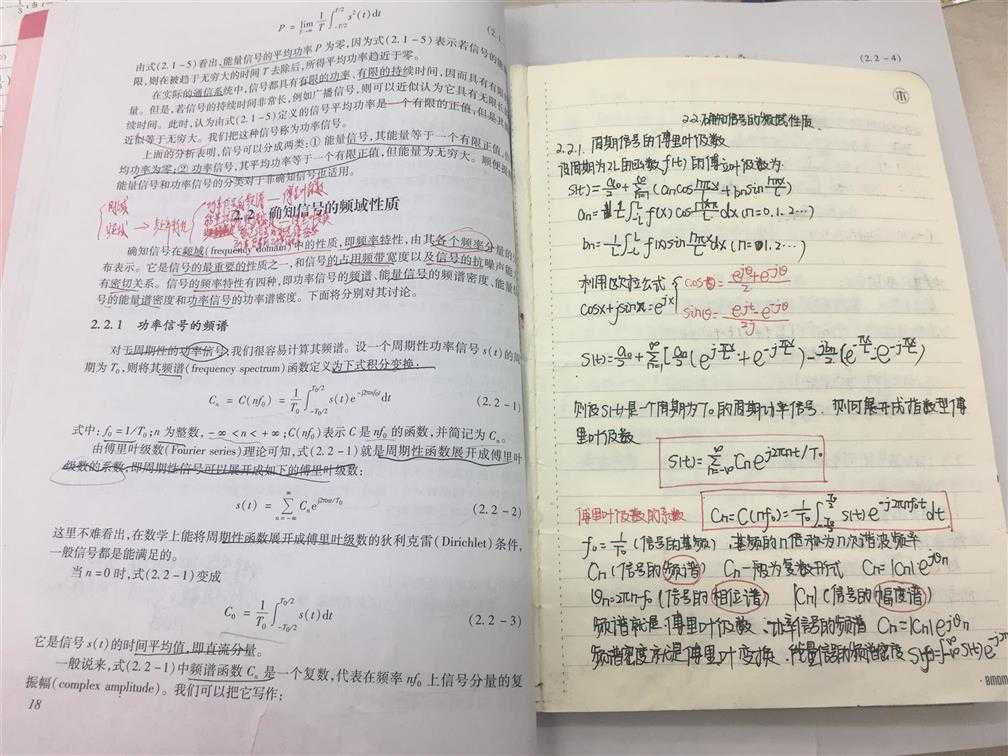 P = lim T→∞ 1/T ∫_{-T/2}^{T/2} s²(t)dt (2.1
由式(2.1-5)看出,能量信号的平均功率P为零,因为式(2.1-5)表示若信号的能
限,则在被趋于无穷大的时间T去除后,所得平均功率趋近于零。
在实际的通信系统中,信号都具有有限的功率、有限的持续时间,因而具有有限
量。但是,若信号的持续时间非常长,例如广播信号,则可以近似认为它具有无限
续时间。此时,认为由式(2.1-5)定义的信号平均功率是一个有限的正值,但是其
近似等于无穷大。我们把这种信号称为功率信号。
上面的分析表明,信号可以分成两类:① 能量信号,其能量等于一个有限正值,
均功率为零;② 功率信号,其平均功率等于一个有限正值,但能量为无穷大。顺便
能量信号和功率信号的分类对于非确知信号也适用。
2.2 确知信号的频域性质
确知信号在频域(frequency domain)中的性质,即频率特性,由其各个频率分量的
布表示。它是信号的最重要的性质之一,和信号的占用频带宽度以及信号的抗噪声能
有密切关系。信号的频率特性有四种,即功率信号的频谱、能量信号的频谱密度、能量
号的能量谱密度和功率信号的功率谱密度。下面将分别对其讨论。
2.2.1 功率信号的频谱
对于周期性的功率信号,我们很容易计算其频谱。设一个周期性功率信号s(t)的周
期为T₀,则将其频谱(frequency spectrum)函数定义为下式积分变换:
Cₙ = C(nf₀) = 1/T₀ ∫_{-T₀/2}^{T₀/2} s(t)e^{-j2πnf₀t}dt (2.2-1)
式中:f₀=1/T₀;n为整数,-∞<n<+∞;C(nf₀)表示C是nf₀的函数,并简记为Cₙ。
由傅里叶级数(Fourier series)理论可知,式(2.2-1)就是周期性函数展开成傅里叶
级数的系数,即周期性信号可以展开成如下的傅里叶级数:
s(t) = ∑_{n=-∞}^{∞} Cₙe^{j2πnt/T₀} (2.2-2)
这里不难看出,在数学上能将周期性函数展开成傅里叶级数的狄利克雷(Dirichlet)条件,
一般信号都是能满足的。
当n=0时,式(2.2-1)变成
C₀ = 1/T₀ ∫_{-T₀/2}^{T₀/2} s(t)dt (2.2-3)
它是信号s(t)的时间平均值,即直流分量。
一般说来,式(2.2-1)中频谱函数Cₙ是一个复数,代表在频率nf₀上信号分量的复
振幅(complex amplitude)。我们可以把它写作:
18
(2.2-4)
2.2 确知信号的频域性质
2.2.1. 周期信号的傅里叶级数
设周期为2L的函数f(t)的傅立叶级数为
s(t)=a₀/2+∑_{n=1}^{∞}(aₙcos nπx/L + bₙsin nπx/L)
aₙ=1/L∫_{-L}^{L} f(x)cos nπx/L dx (n=0.1.2…)
bₙ=1/L∫_{-L}^{L} f(x)sin nπx/L dx (n=1.2…)
利用欧拉公式 cosθ=(e^{jθ}+e^{-jθ})/2
cosx+jsinx=e^{jx}
则设S(t)是一个周期为T₀的周期功率信号.则可展开成指数型傅
里叶级数
S(t)=∑_{n=-∞}^{∞} Cₙe^{j2πnt/T₀}
傅里叶级数的系数 Cₙ=C(nf₀)=1/T₀∫_{-T₀/2}^{T₀/2} s(t)e^{-j2πnf₀t}dt
f₀=1/T₀(信号的基频) .基频的n倍称为n次谐波频率
Cₙ(信号的频谱) Cₙ一般为复数形式 Cₙ=|Cₙ|e^{jθₙ}
θₙ=2πnf₀(信号的相位谱) |Cₙ|(信号的幅度谱)
频谱就是傅里叶级数.功率信号的频谱 Cₙ=|Cₙ|e^{jθₙ}
频谱密度就是傅里叶变换.能量信号的频谱密度